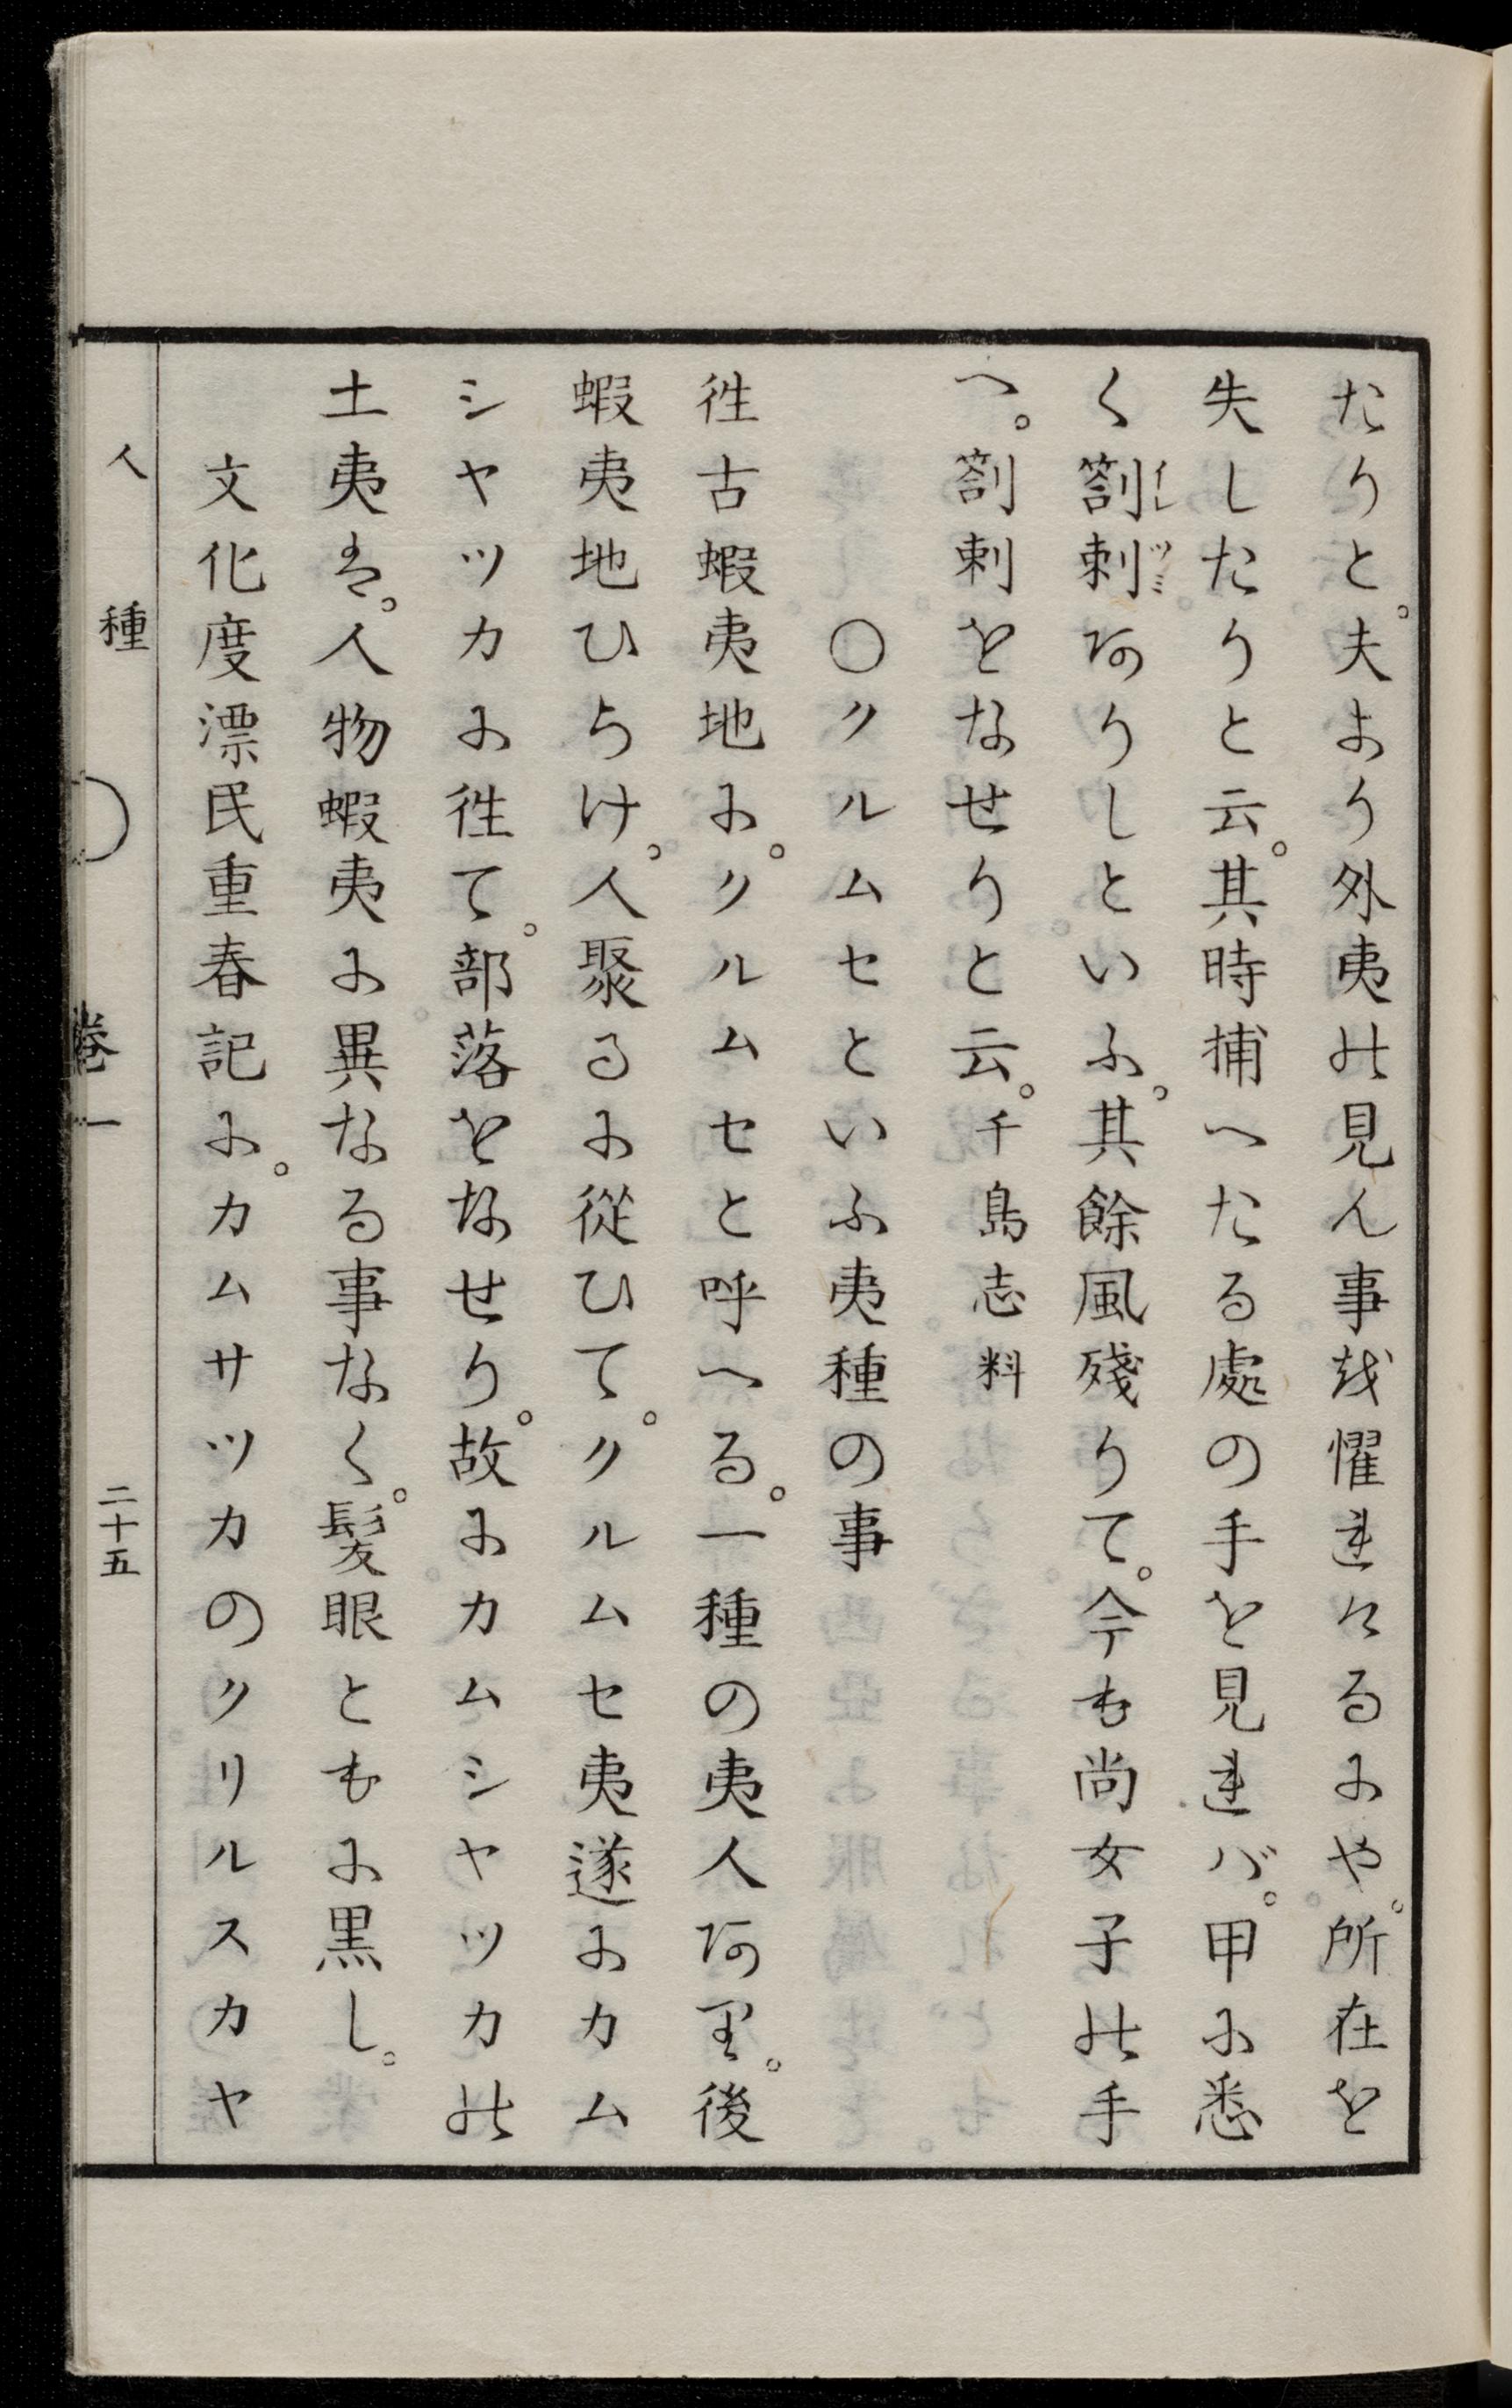 たりと。夫より外夷の見ん事を懼れけるにや。所在を
失したりと云。其時捕へたる處の手を見れバ。甲に悉
く劄刺ありしといふ。其餘風殘りて。今も尚女子の手
イレ ヅミ
へ。劄刺をなせりと云。千島志料
〇クルムセといふ夷種の事
徃古蝦夷地に。クルムセと呼へる。一種の夷人あり。後
蝦夷地ひらけ。人聚るに從ひて。クルムセ夷遂にカム
シヤツカに徃て。部落をなせり。故にカムシヤツカの
土夷は。人物蝦夷に異なる事なく。髪眼ともに黒し。
文化度漂民重春記に。カムサツカのクリルスカヤ
人種 卷一 二十五